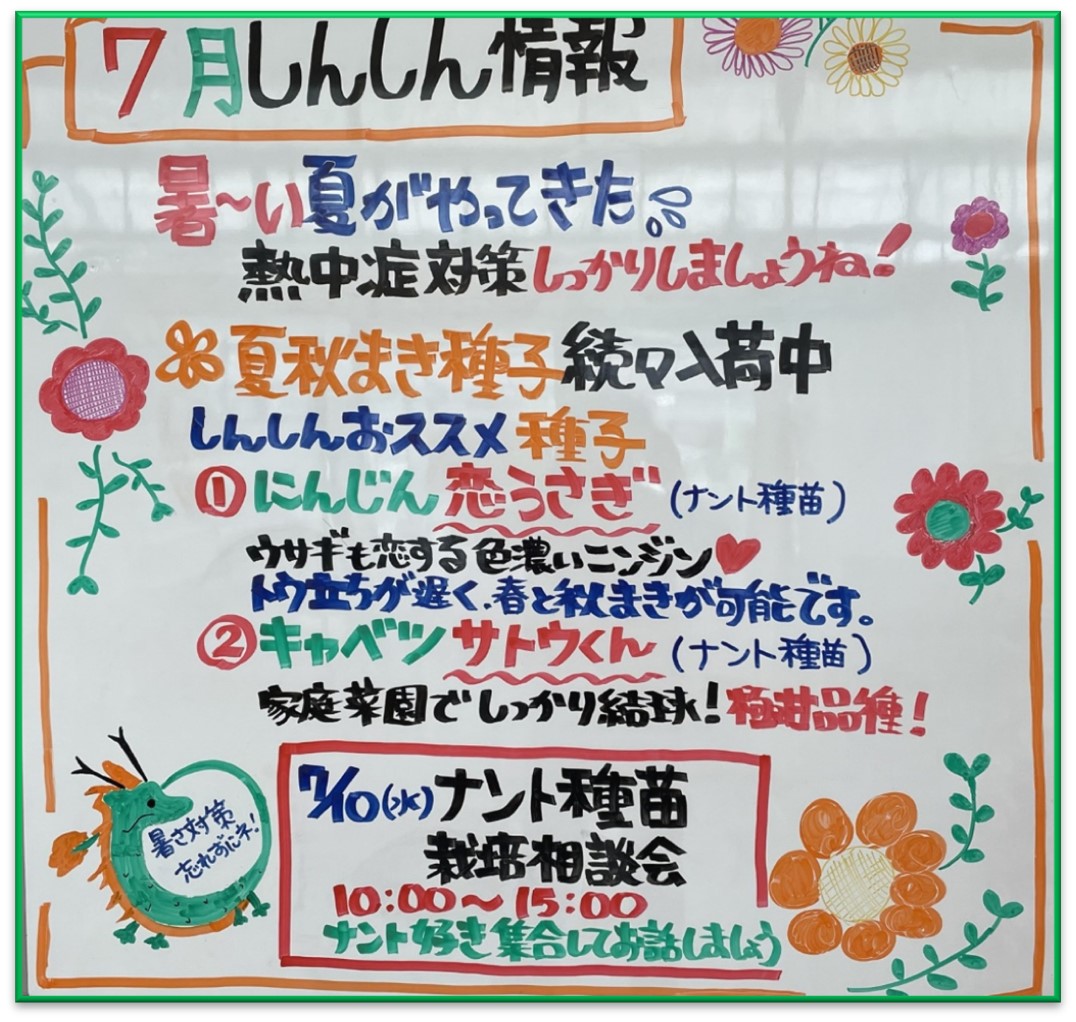 7月しんしん情報
暑〜い夏がやってきた
熱中症対策しっかりしましょうね!
夏秋まき種子続々入荷中
しんしんおススメ種子
①にんじん 恋うさぎ (ナント種苗)
ウサギも恋する色濃いニンジン♥
トウ立ちが遅く、春と秋まきが可能です。
②キャベツ サトウくん (ナント種苗)
家庭菜園でしっかり結球!極甘品種!
7/10(水)ナント種苗
栽培相談会
10:00〜15:00
ナント好き集合してお話しましょう
暑さ対策
忘れずにネ!